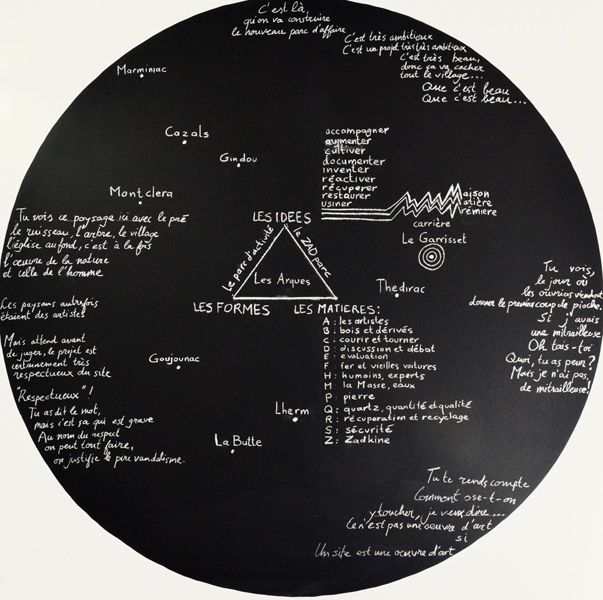 C'est là,
qu'on va construire
le nouveau parc d'affaire
C'est très ambitieux
C'est un projet très très ambitieux
C'est très beau,
donc ça va cacher
tout le village...
Que c'est beau
Que c'est beau...
Marminiac
Cazals
Gindou
Montclera
accompagner
augmenter
cultiver
documenter
inventer
réactiver
récupérer
restaurer
usiner
maison
matière
première
carrière
Le Garrisset
LES IDEES
Le parc d'activité
le ZAD parc
Les Arques
LES FORMES
LES MATIERES:
Thédirac
Tu vois ce paysage ici avec le pré
le ruisseau, l'arbre, le village
l'église au fond, c'est à la fois
l'œuvre de la nature
et celle de l'homme
Les paysans autrefois
étaient des artistes
Mais attend avant
de juger, le projet est
certainement très
respectueux du site
"Respectueux"!
Tu as dit le mot,
mais c'est ça qui est grave
Au nom du respect
on peut tout faire,
on justifie le pire vandalisme.
A : les artistes
B : bois et dérivés
C : courir et tourner
D : discussion et débat
E : évaluation
F : fer et vieilles voitures
H : humains, experts
M : la Masse, eaux
P : pierre
Q : quartz, quantité et qualité
R : récupération et recyclage
S : sécurité
Z : Zadkine
Goujounac
Lherm
La Butte
Tu vois,
le jour où
les ouvriers viendront
donner le premier coup de pioche.
Si j'avais
une mitrailleuse
Oh tais-toi
Quoi, tu as peur?
Mais je n'ai pas
de mitrailleuse!
Tu te rends compte
Comment ose-t-on
y toucher, je veux dire...
Ce n'est pas une oeuvre d'art
si
Un site est une oeuvre d'art